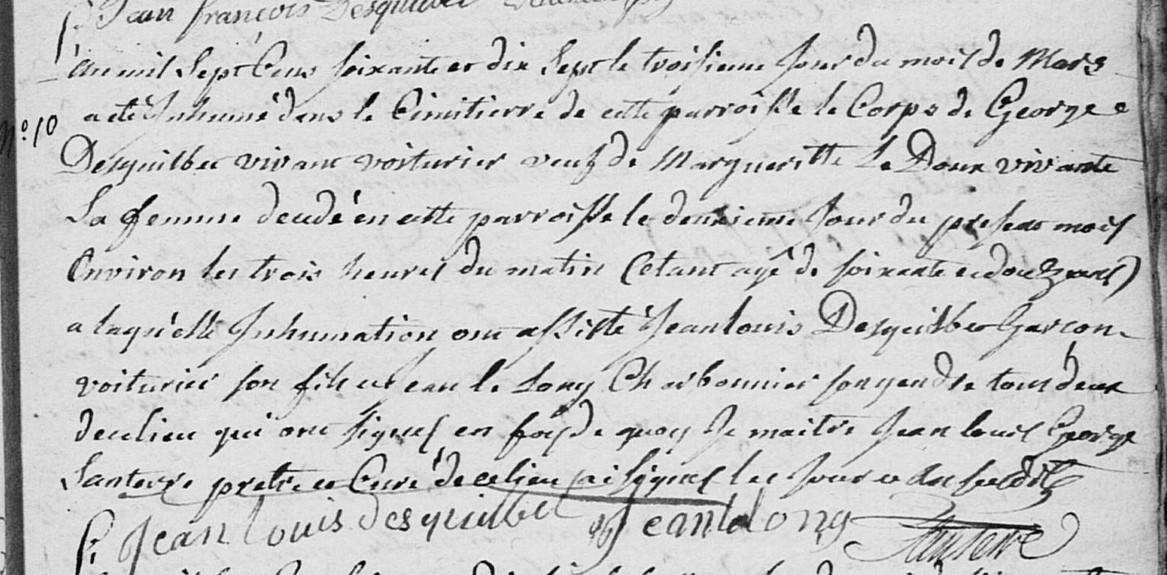 Jean françois Desquilbet
L'an mil Sept Cens soixante et dix Sept le troisieme Jour du mois de Mars
N° 10 a eté Inhumé dans le Cimitierre de cette parroisse le Corps de George
Desquilbet vivant voiturier veuf de Margueritte Le Doux vivante
Sa femme decedé en cette parroisse le deuxieme Jour du present mois
Environ les trois heures du matin (etant agé de soixante et douze ans)
a laquelle Inhumation ont assisté Jean louis Desquilbet Garcon
voiturier son fils et Jean le Long Charbonnier son gendre tous deux
de ce lieu qui ont signés en foy de quoy Je maitre Jean louis George
Santerre pretre et Curé de ce lieu ai signés les Jour et An susdits
Jean Louis desquilbet Jean le long Santerre